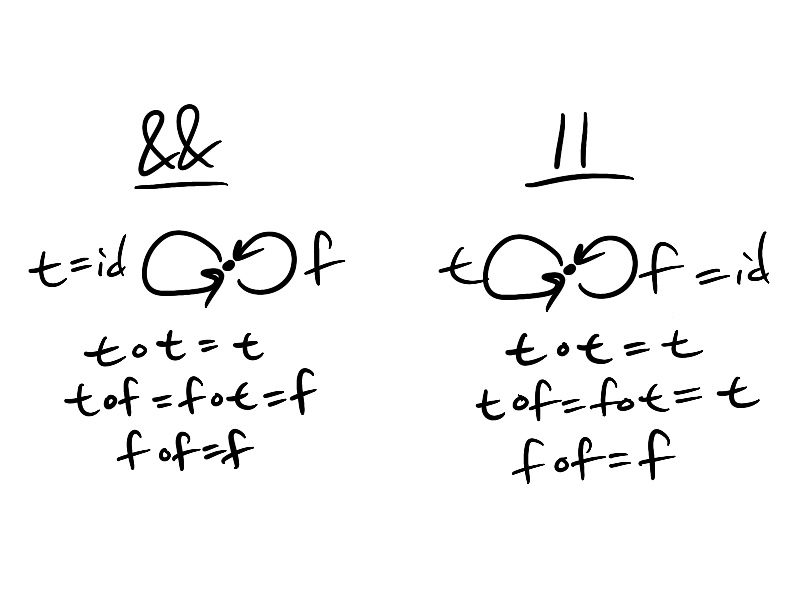 &&
t=id f
t∘t=t
t∘f=f∘t=f
f∘f=f
||
t f=id
t∘t=t
t∘f=f∘t=t
f∘f=f